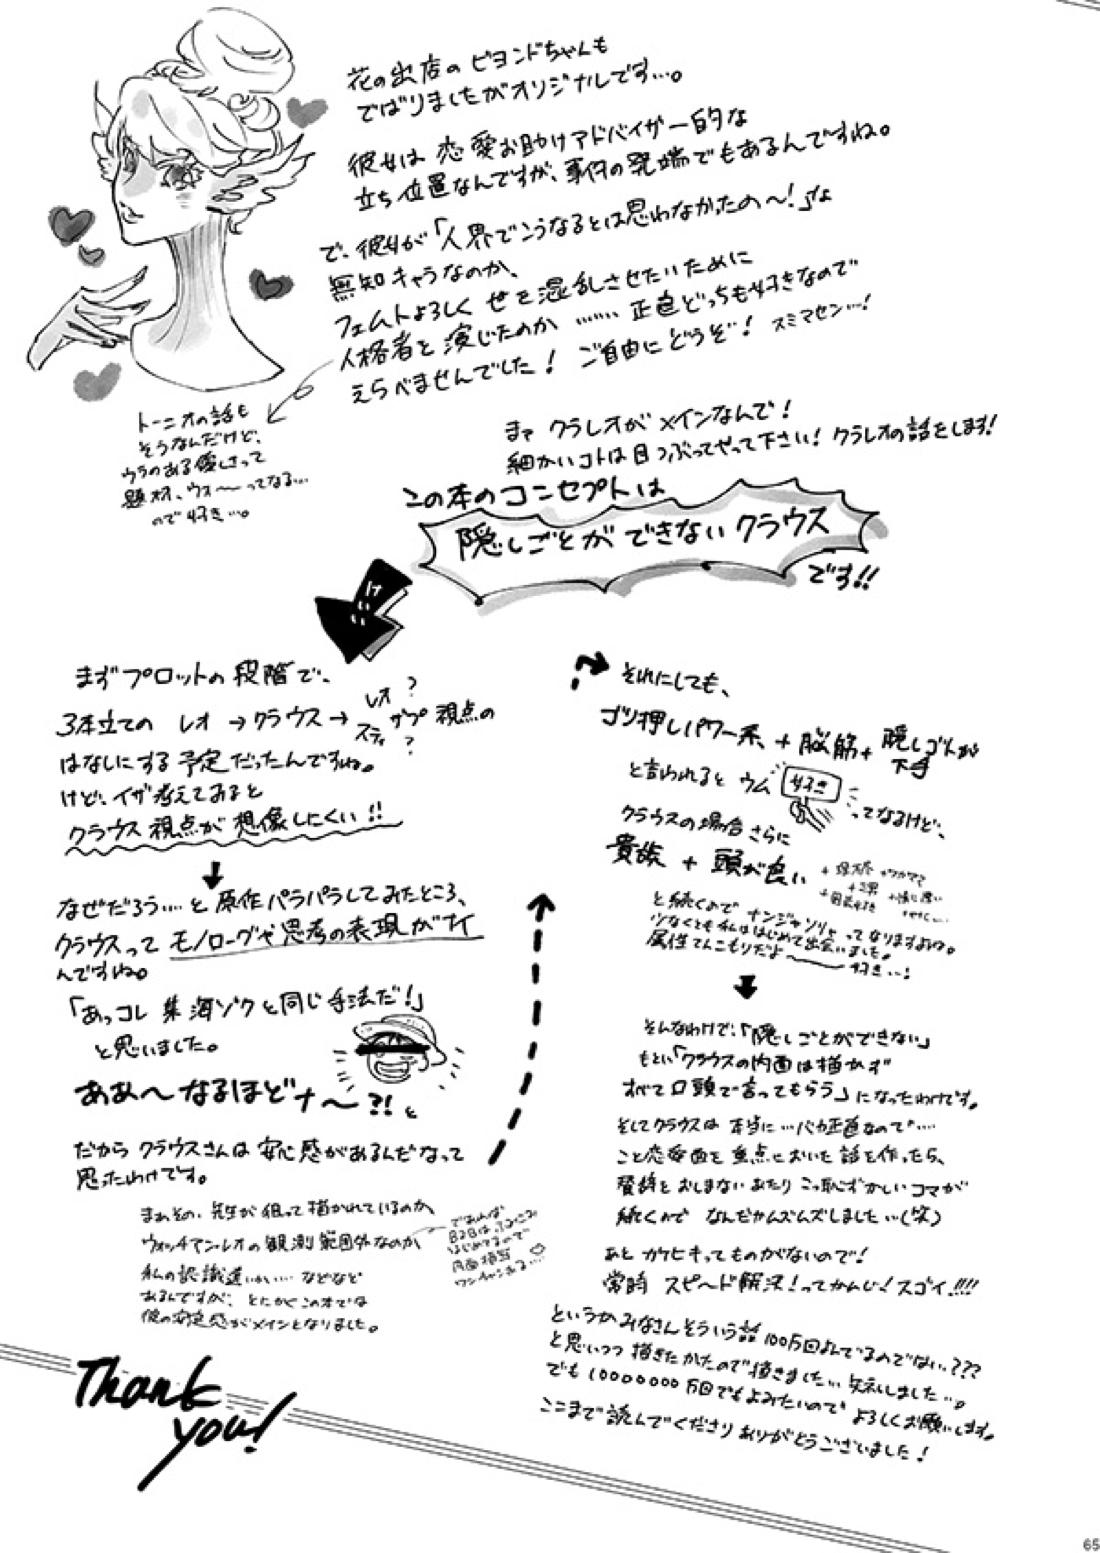 花の出店のビヨンドちゃんも
でばりましたがオリジナルです…。
彼女は恋愛お助けアドバイザー的な
立ち位置なんですが、事件の発端でもあるんですね。
で、彼女が「人界でこうなるとは思わなかったの〜!」な
無知キャラなのか、
フェムトよろしく世を混乱させたいために
人格者を演じたのか……正直どっちも好きなので
えらべませんでした! ご自由にどうぞ! スミマセン…!
トーニオの話も
そうなんだけど、
ウラのある優しさって
題材、ウォ〜〜ってなる…
ので好き…。
まぁ クラレオがメインなんで!
細かいコトは目つぶってやって下さい! クラレオの話をします!
この本のコンセプトは
隠しごとができないクラウス
です!!
けいい
まずプロットの段階で、
3本立ての レオ→クラウス→
レオ?
ザプ
スティ?
視点の
はなしにする予定だったんですね。
けど、イザ考えてみると
クラウス視点が想像しにくい!!
なぜだろう…と原作パラパラしてみたところ、
クラウスってモノローグや思考の表現がナイ
んですね。
「あっコレ 某海ゾクと同じ手法だ!」
と思いました。
ああ〜なるほどナ〜?! と
だからクラウスさんは安心感があるんだなって
思ったわけです。
まぁその、先生が狙って描かれているのか
ウォッチアン・レオの観測範囲外なのか
私の認識違いか…などなど
あるんですが、とにかくこの本では
彼の安定感がメインとなりました。
であれば
B2Bは
はじめてるので
内面描写
ワンチャンある…
それにしても、
ゴリ押しパワー系、+脳筋+隠しゴトが
下手
と言われると ウム 好き ってなるけど、
クラウスの場合さらに
貴族 + 頭が良い
と続くのでナンジャソリャってなりますよね。
少なくとも私ははじめて出会いました。
属性てんこもりだよ〜 好き…!
そんなわけで、「隠しごとができない」
もとい「クラウスの内面は描かず
すべて口頭で言ってもらう」になったわけです。
そしてクラウスは本当に…バカ正直なので…
こと恋愛面を重点においた話を作ったら、
賛辞をおしまないあたりこっ恥ずかしいコマが
続くので なんだかムズムズしました…(笑)
あとカケヒキってものがないので!
常時スピード解決!ってかんじ!スゴイ!!!!
というかみなさんそういう話100万回よんでるのでない???
と思いつつ描きたかたので描きました…失礼しました…。
でも10000000万回でもよみたいのでよろしくお願いします。
ここまで読んでくださりありがとうございました!
Thank
you!
65